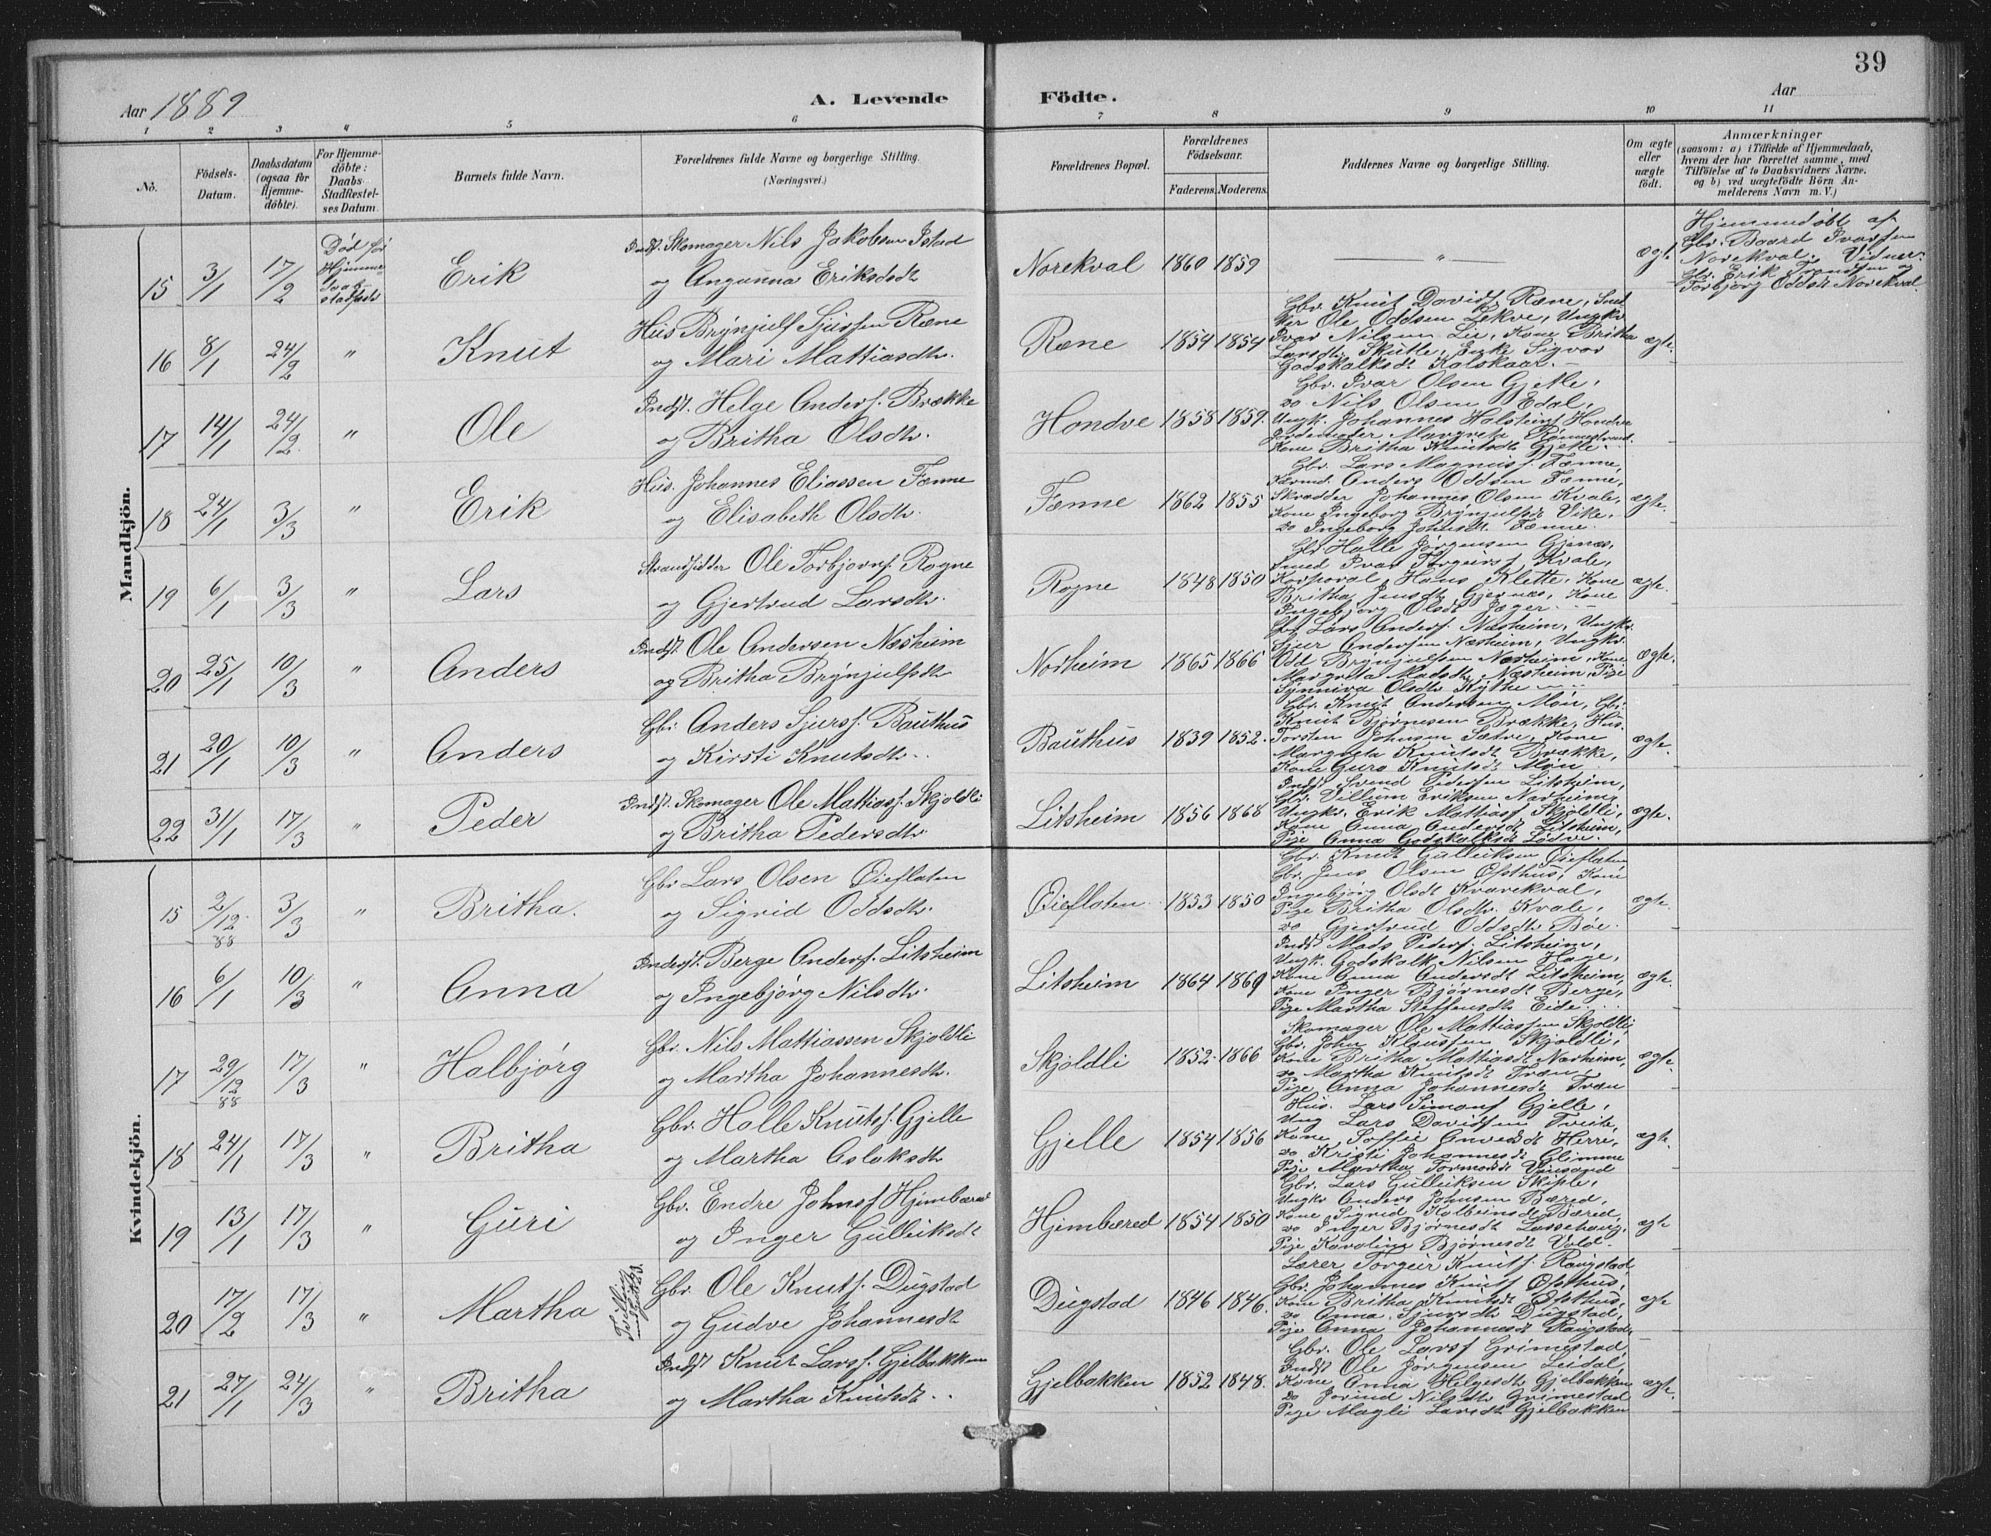 39
Aar 1889
A. Levende Födte.
Aar
1 2 3 4 5 6 7 8 9 10 11
No.
Födsels-Datum.
Daabsdatum (ogsaa for Hjemme-döbte).
For Hjemme-döbte: Daabs Stadfæstel-ses Datum.
Barnets fulde Navn.
Forældrenes fulde Navne og borgerlige Stilling. (Næringsvei.)
Forældrenes Bopæl.
Forældrenes Födselsaar.
Faderens. Moderens.
Faddernes Navne og borgerlige Stilling.
Om ægte eller uægte födt.
Anmærkninger
(saasom: a) i Tilfælde af Hjemmedaab, hvem der har forrettet samme, med Tilföielse af to Daabsvidners Navne, og b) ved uægtefödte Börn An-melderens Navn m. V.)
Mandkjön.
15 3/1 17/2 Død før Hjemme-daab stadfæst Erik
Indst. Skomager Nils Jakobsen Istad
og Angunna Eriksdtr
Norekval 1860 1859 — " — ægt
Hjemmedøbt af
Gbr. Baard Ivarsen
Norekval. Vidner:
Gbr. Erik Trondsen og
Torbjørg Oddsdtr Norekval
16 8/1 24/2 " Knut
Hus. Brynjulf Sjursen Ræne
og Mari Mattiasdtr.
Ræne 1854 1854 ægte.
Gbr. Knut Davidsf. Ræne, Snek
ker Ole Oddsen Lekve, Ungkr
Ivar Nilsen Lie, Kone Britha
Larsdtr Skutle, Enke Sigvor
Godskalksdt Kolskaar.
17 14/1 24/2 " Ole
Indst. Helge Andersf. Brække
og Britha Olsdtr.
Hondve 1858 1859.
Gbr. Ivar Olsen Gjelle,
do Nils Olsen Edal,
Ungk. Johannes Holsteinsf Hondve
Jordemoder Margreta
Kone Britha Knutsdt Gjelle.
18 24/1 3/3 " Erik
Hus. Johannes Eliassen Fenne
og Elisabeth Olsdtr.
Fenne 1862 1855 ægte.
Gbr. Lars Magnusf. Fenne,
Anders Oddsen Fenne,
Skrædder Johannes Olsen Kvale,
Kone Ingeborg Brynjulfsdt Vike,
do Ingeborg Johnsdt. Fenne.
19 6/1 3/3 " Lars
Strandsidder Ole Torbjørnsf. Rogne
og Gjertrud Larsdtr.
Rogne 1848 1850 ægte.
Gbr Halle Jørgensen Gjernes,
Smed Ivar Torgeirsf. Kvale,
Korporal Hans Klette, Kone
Britha Jensdt Gjernæs, Kone
Ingebjørg Olsdt Jæger.
20 25/1 10/3 " Anders
Indst. Ole Andersen Næsheim
og Britha Brynjulfsdtr
Norheim 1865 1866 ægte.
Gbr Lars Andersf. Næsheim, Ungkr.
Sjur Andersen Næsheim, Ungkr.
Odd Brynjulfsen Norheim, Kone
Margreta Madsdtr Næsheim, Pige
Synniva Olsdtr Kythe
21 20/1 10/3 " Anders
Gbr. Anders Sjursf. Bauthus
og Kirsti Knutsdtr.
Bauthus 1839 1852. ægte.
Gbr. Knut Andersen Møn, Gbr.
Knut Bjørnesen Brække, Hus.
Torsten Johnsen Sætre, Kone
Margreta Knutsdt Brække,
Kone Guro Knutsdt Møn
22 31/1 17/3 " Peder
Indst. Skomager Ole Mattiasf. Skjoldli
og Britha Pedersdtr
Litsheim 1856 1868 ægte.
Indst. Svend Pedersen Litsheim,
Gbr. Villum Eriksen Norheim,
Ungkr. Erik Mattiasf Skjoldli,
Kone Anna Andersdt Litsheim,
Pige Anna Godskalksdt Lødve.
Kvindekjön.
15 2/12 88 3/3 " Britha.
Gbr Lars Olsen Øieflaten
og Sigrid Oddsdtr.
Øieflaten 1853 1850 ægte.
Gbr. Knut Gulleiksen Øieflaten
Gbr. Jens Olsen Opthus, Kone
Ingebjørg Olsdt Kvarekval,
Pige Britha Olsdtr. Kvale,
do Gjertrud Oddsdt Bøe.
16 6/1 10/3 " Anna
Inderst. Berge Andersf. Litsheim
og Ingebjørg Nilsdtr.
Litsheim 1864 1869 ægte.
Indst Mads Pedersf. Litsheim,
Ungk. Godskalk Nilsen Hage,
Kone Anna Andersdt Litsheim,
Kone Inger Bjørnesdt Berge,
Pige Martha Steffensdt Eide.
17 29/12 88 17/3 " Halbjørg
Gbr. Nils Mattiassen Skjoldli
og Martha Johannesdtr.
Skjoldli 1852. 1866 ægte.
Skomager Ole Mattiassen Skjoldli
Gbr. John Klaussen Skjoldli,
Kone Britha Mattiasdt Norheim,
do Martha Knutsdt Træn,
Pige Anna Johannesdt Træn
18 24/1 17/3 " Britha
Gbr. Halle Knutsf. Gjelle
og Martha Aslaksdtr
Gjelle 1854 1856 ægte.
Hus. Lars Simonsf Gjelle,
Ung Lars Davidsen Tveite,
Kone Soffie Herre,
do Kristi Johannesdt Glimme
Pige Martha Tormodsdt
19 13/1 17/3 " Guri
Gbr. Endre Johnsf. Hjembæred
og Inger Gulleiksdt
Hjembæred 1854 1850 ægt
Gbr. Lars Gulleiksen Skiple,
Ungkr Anders Johnsen Bæred,
Kone Sigrid Kolbeinsdt Bæred,
do Inger Bjørnesdt Lassehaug,
Pige Karolina Bjørnesdt Vold.
20 17/2 17/3 " Martha Tvilling
Gbr. Ole Knutsf. Dugstad
og Gudve Johannesdt
Dugstad 1846 1846. ægt
Lærer Torgeir Knutsf. Raugstad
Gbr. Johannes Knutsf Opthus,
Kone Britha Knutsdt Opthus,
do Anna Sjursdtr Dugstad,
Pige Anna Johannesdt Raugstad
21 27/1 24/3 " Britha
Indst Knut Larsf. Gjelbakken
og Martha Knutsdt.
Gjelbakken 1852 1848. ægte.
Gbr. Ole Larsf Grimestad,
Indst Ole Jørgensen Leidal,
Kone Anna Helgesdt Gjelbakken
do Jorund Nilsdtr Grimestad
Pige Magli Larsdt Gjelbakken